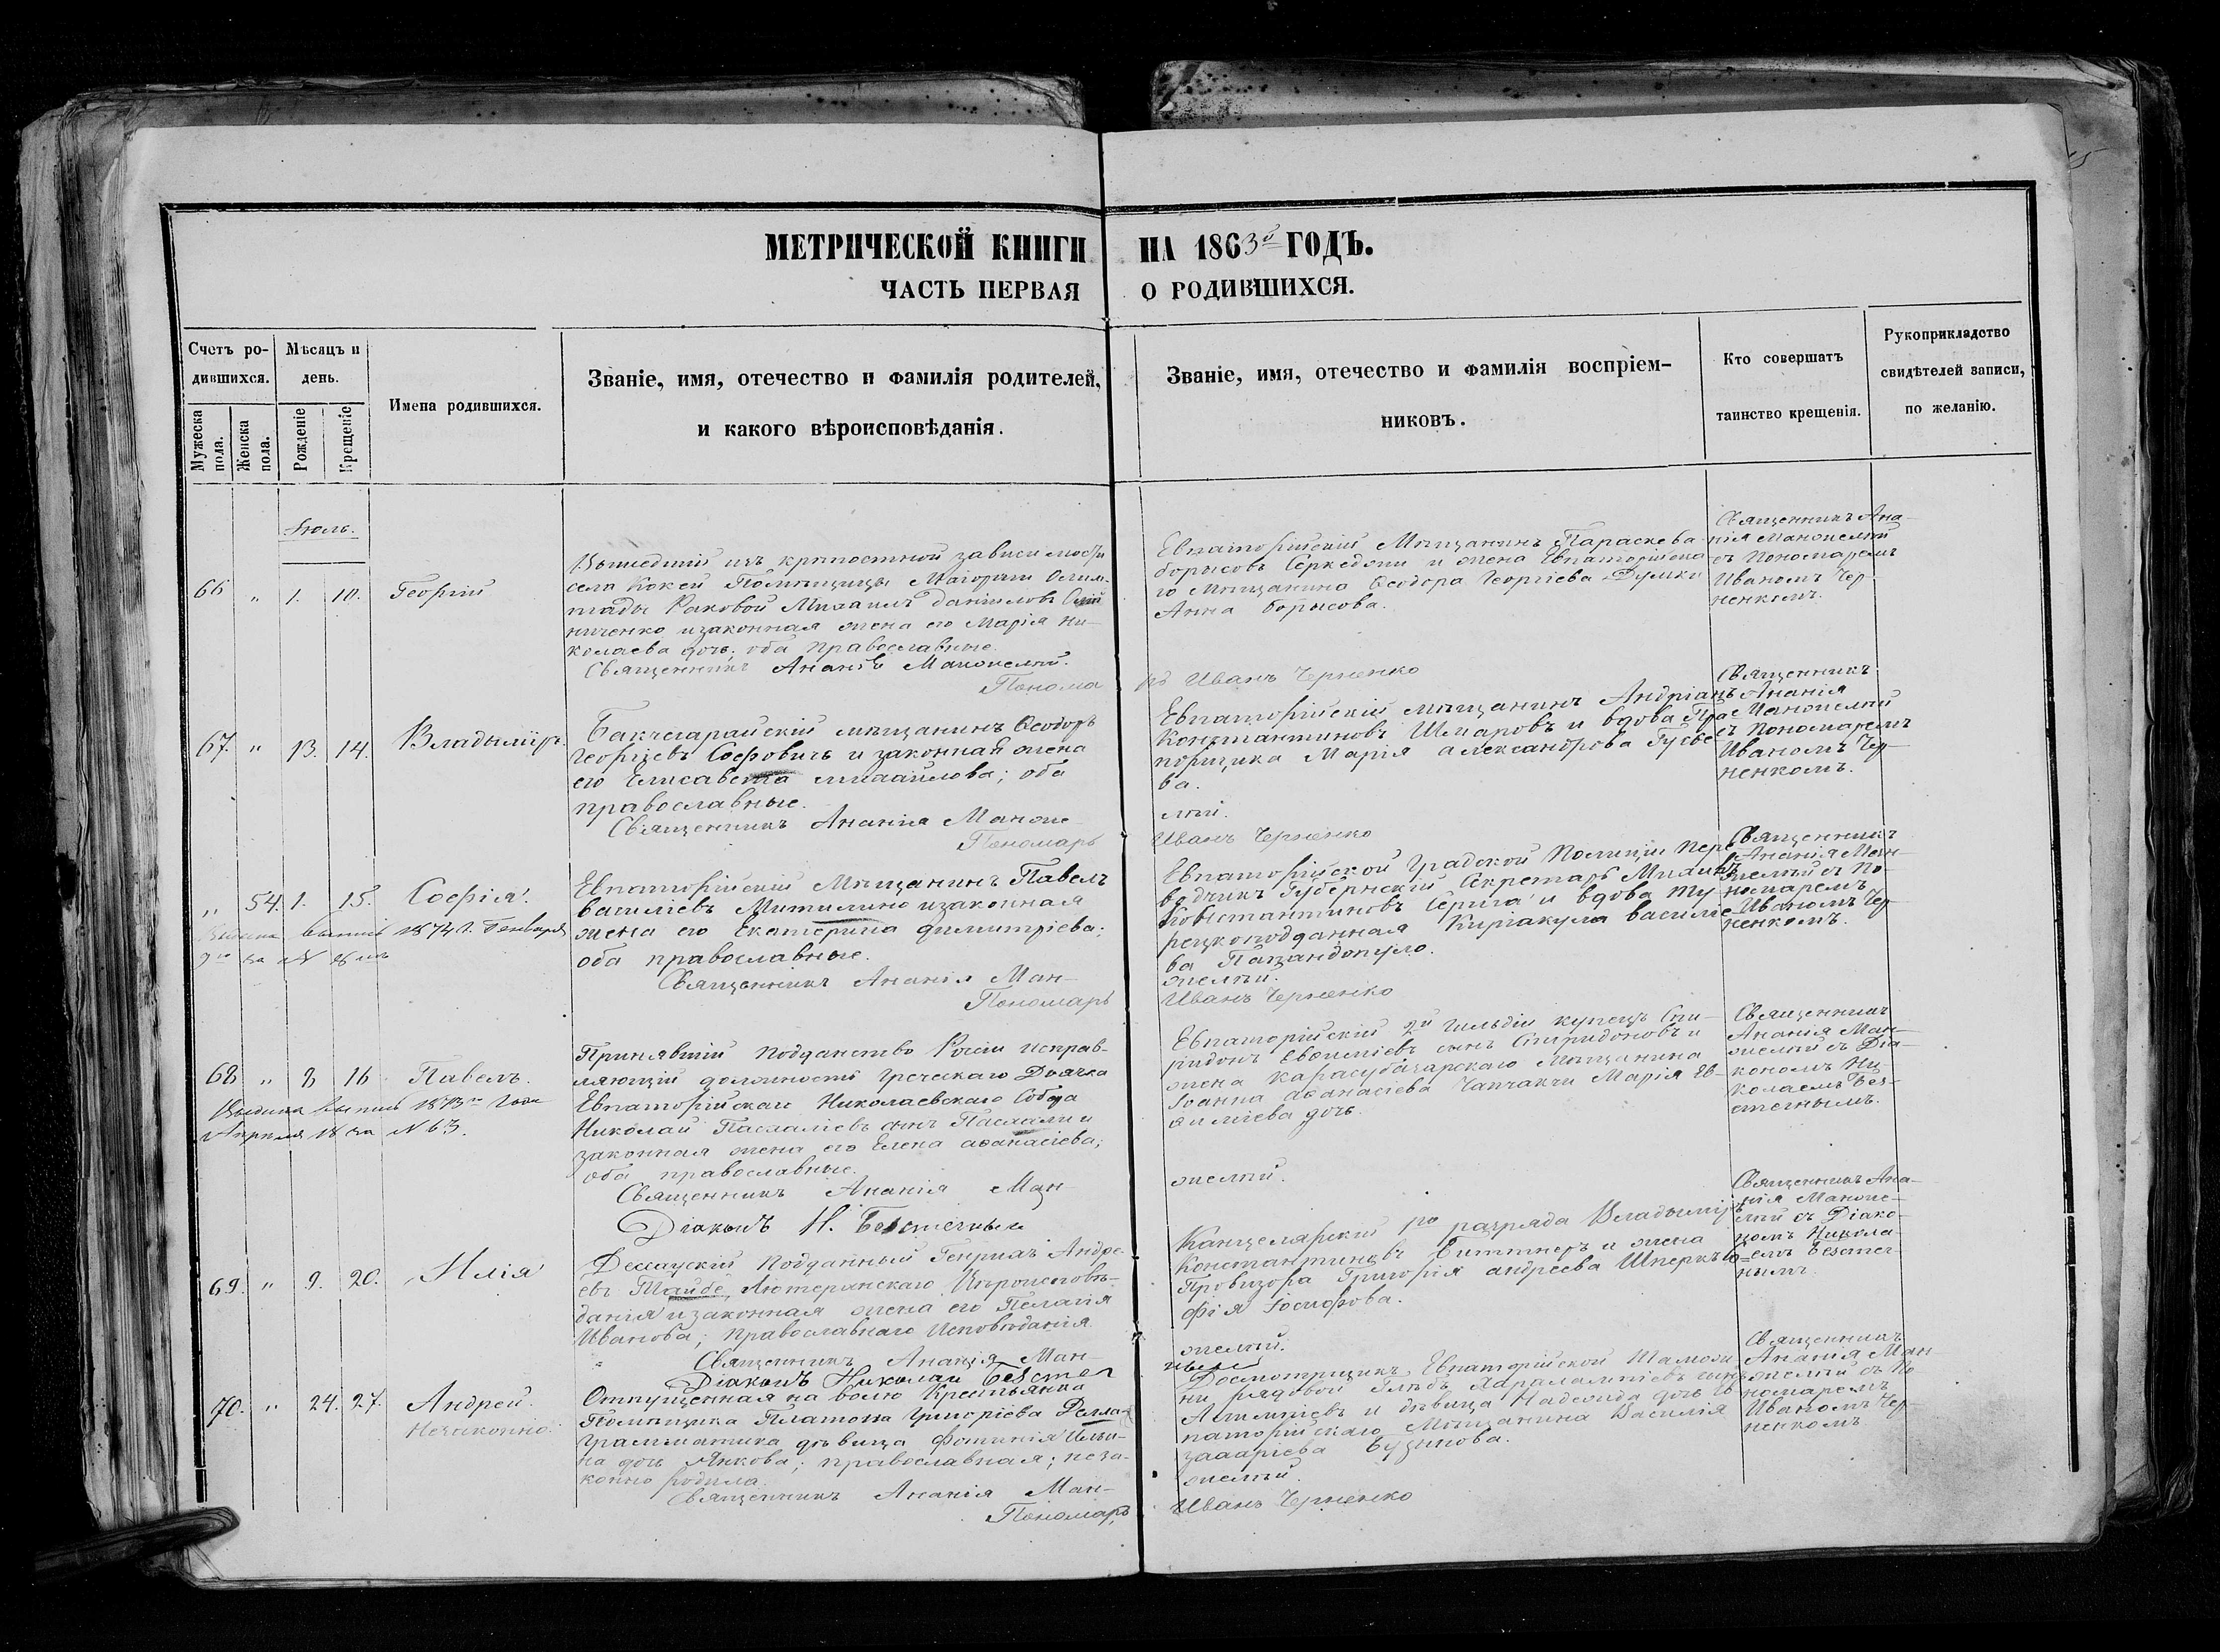 МЕТРИЧЕСКОЙ КНИГИ НА 1863й ГОДЪ.
ЧАСТЬ ПЕРВАЯ О РОДИВШИХСЯ.
Счетъ ро-
дившихся.
Мужеска пола.
Женска пола.
Мѣсяцъ и
день.
Рожденіе
Крещеніе
Имена родившихся.
Званіе, имя, отечество и фамилія родителей,
и какого вѣроисповѣданія.
Званіе, имя, отечество и фамилія воспріем-
никовъ.
Кто совершатъ
таинство крещенія.
Рукоприкладство
свидѣтелей записи,
по желанію.
Іюль.
66 " 1. 10. Георгій
Вышедшій изъ крѣпостной зависимости
села Кокей Помѣщицы Маіорши
Раковой Михаилъ Даніиловъ
ниченко и законная жена его Марія Ни-
колаева дочь; оба православные.
Священникъ Ананія Манжелѣй.
Понома
Евпаторійскій Мѣщанинъ Параскева
Борисовъ Серкедони и жена Евпаторійска
го Мѣщанина Ѳеодора Георгіева
Анна Борисова.
рь Иванъ Черненко
Священникъ Ана-
нія Манжелѣй
съ Пономаремъ
Иваномъ Чер-
ненкомъ.
67. " 13. 14. Владыміръ.
Бакчсарайскій мѣщанинъ Ѳеодоръ
Георгіевъ Софовичъ и законная жена
его Елисавета Михайлова; оба
православные.
Священникъ Ананія Манже-
Пономарь
Евпаторійскій мѣщанинъ Андріанъ
Константиновъ Шмаровъ и вдова Пра-
порщика Марія Александрова Гусье
ва.
лѣй.
Иванъ Черненко
Священникъ
Ананія
Манжелѣй
съ Пономаремъ
Иваномъ Чер-
ненкомъ.
" 54. 1. 15. Софія.
Выдана выпись 1874 г. Генваря
9го за №
Евпаторійскій Мѣщанинъ Павелъ
Василіевъ Митилино и законная
жена его Екатерина Димитріева;
оба православные.
Священникъ Ананія Ман-
Пономарь
Евпаторійской Градской Полиціи пере
водчикъ Губернскій Секретарь Михаилъ
Константиновъ Серига и вдова Ту-
рецкоподданная Киріакула Василіе-
ва Папандопуло.
желѣй.
Иванъ Черненко
Священникъ
Ананія Ман-
желѣй съ По-
номаремъ
Иваномъ Чер
ненкомъ.
68 " 8 16 Павелъ.
Выдана выпись 1873го года
Апрѣля 18 за № 63.
Принявшій подданство Росіи исправ-
ляющій должность Греческаго Дьячка
Евпаторійскаго Николаевскаго Собора
Николай Пасхаліевъ сынъ Пасхали и
законная жена его Елена Аѳанасіева;
оба православные.
Священникъ Ананія Ман-
Діаконъ Н. Безсмечный
Евпаторійскій 2й гильдіи купецъ Спи-
ридонъ Евѳиміевъ сынъ Спиридоновъ и
жена Карасубазарскаго Мѣщанина
Іоанна Аѳанасіева Чапчакчи Марія Ев-
ѳиміева дочь.
желѣй.
Священникъ
Ананія Ман-
желѣй съ Діа-
кономъ Ни-
колаемъ Без-
смечнымъ.
69. " 9. 20. Илія
Дессауский Подданный Генрихъ Андре
евъ Тайбе, Лютеранскаго Вѣроисповѣ-
данія и законная жена его Пелагія
Иванова; Православнаго Исповѣданія
Священникъ Ананія Ман-
Діаконъ Николай Безсмеч
Канцелярскій 1го разряда Владыміръ
Константиновъ Биттнеръ и жена
Провизора Григорія Андреева Шперкъ Со=
фія Іосифова.
желѣй.
ный
Священникъ Ана-
нія Манже-
лѣй съ Діако-
номъ Никола-
емъ Безсмеч-
нымъ.
70. " 24. 27. Андрей.
Незаконно.
Отпущенная на волю Крестьянка
Помѣщика Платона Григоріева Делла-
Грамматика дѣвица Фотинія Ильи-
на дочь Янкова; православная; неза-
конно родила.
Священникъ Ананія Ман-
Пономарь
Досмотрщикъ Евпаторійской Таможи
ни рядовой Глѣбъ Харалампіевъ сынъ
и дѣвица Надежда дочь Ев
паторійскаго Мѣщанина Василія
Захаріева Бузинова.
желѣй.
Иванъ Черненко
Священникъ
Ананія Ман
желѣй съ По
номаремъ
Иваномъ Чер-
ненкомъ